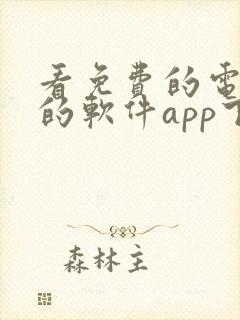 看免費的電
的軟件app下
森林主